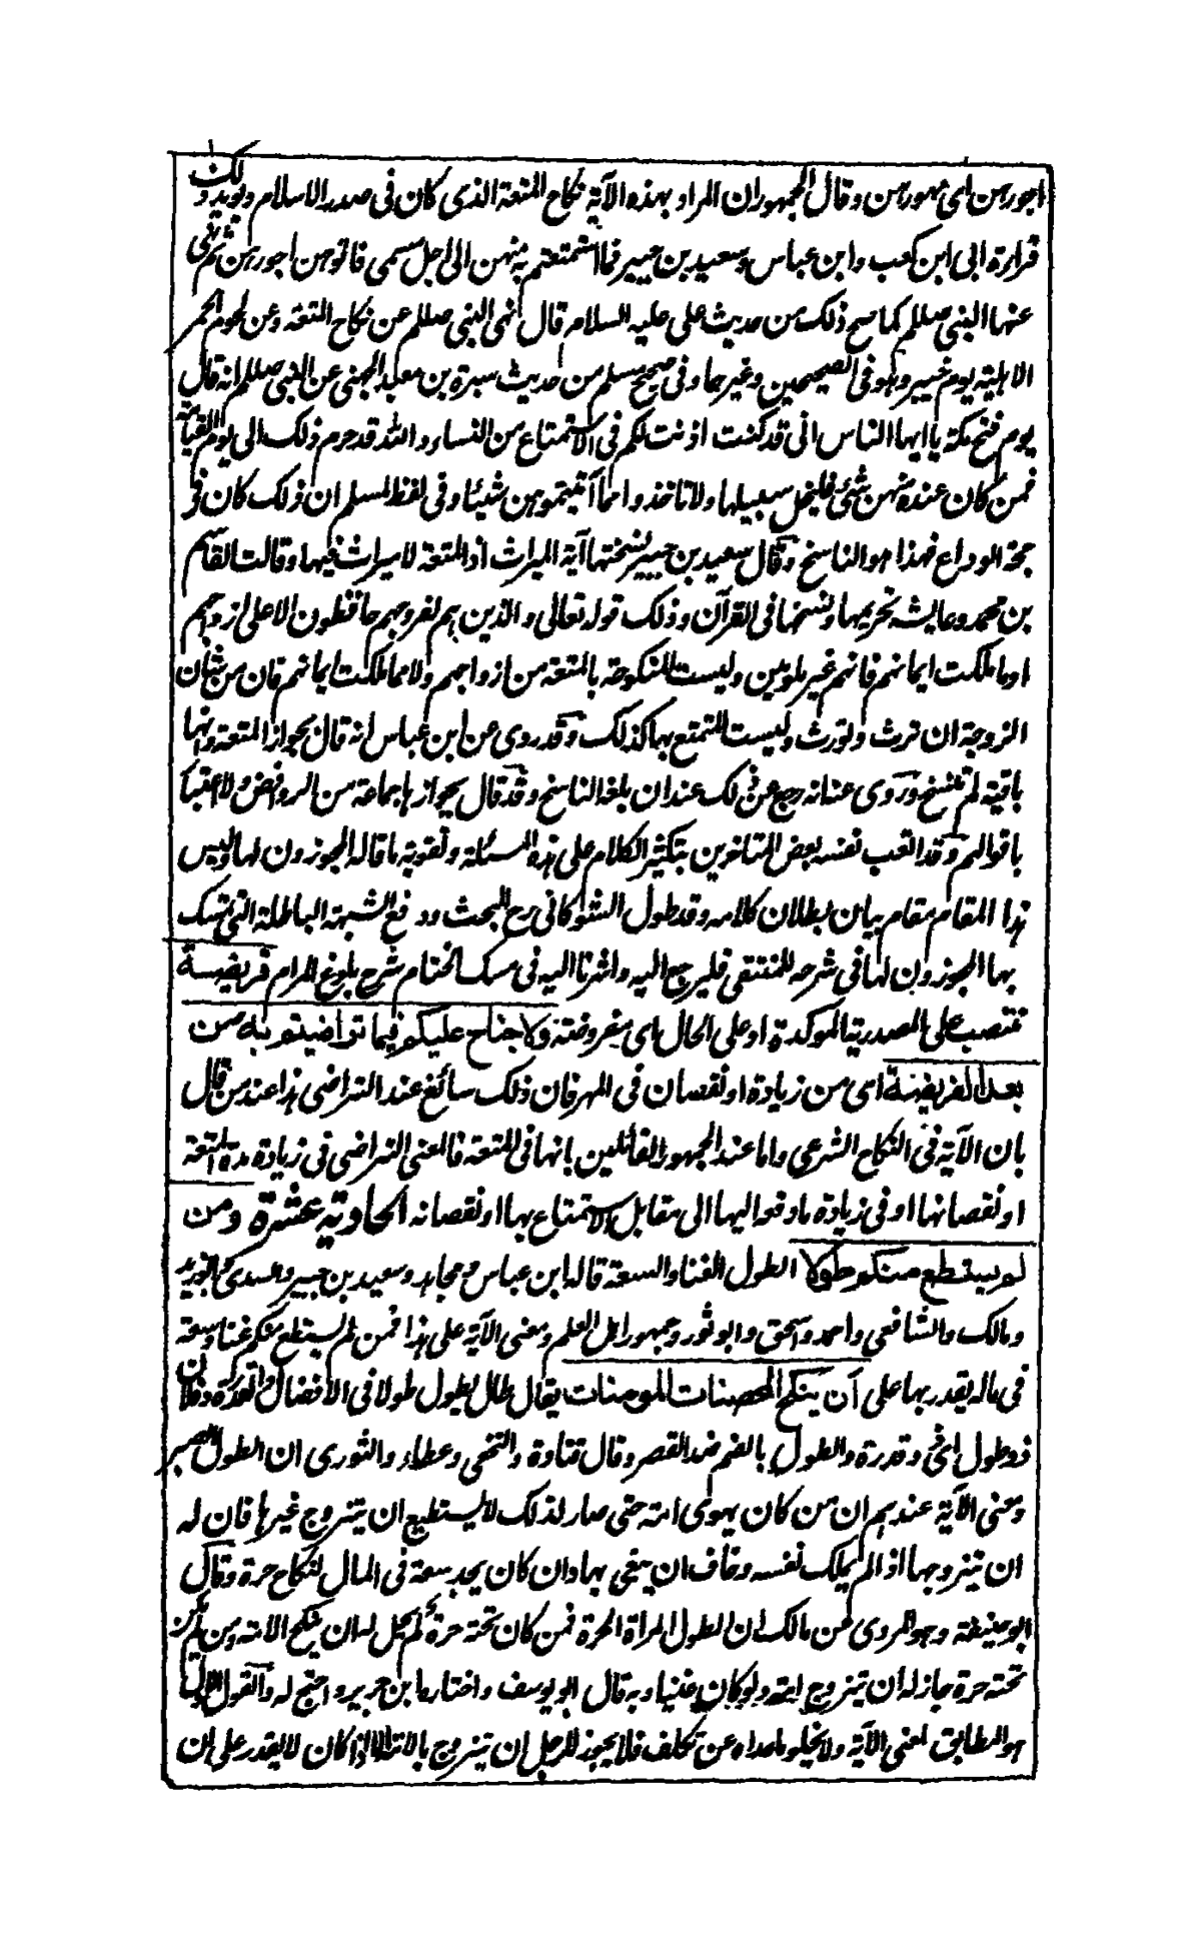 اجورهن اى مهورهن وقال الجمهور ان المراد بهذه الآية نكاح المتعة الذى كان فى صدر الاسلام ويؤيد ذلك
قراءة ابى ابن كعب وابن عباس وسعيد بن جبير فما استمتعتم به منهن الى اجل مسمى فاتوهن اجورهن ثم نهى
عنها النبى صللم كما صح ذلك من حديث على عليه السلام قال نهى النبى صللم عن نكاح المتعة وعن لحوم الحمر
الاهلية يوم خيبر وهو فى الصحيحين وغيرهما وفى صحيح مسلم من حديث سبرة بن معبد الجهنى عن النبى صللم انه قال
يوم فتح مكة يا ايها الناس انى قد كنت اذنت لكم فى الاستمتاع من النساء والله قد حرم ذلك الى يوم القيامة
فمن كان عنده منهن شئ فليخل سبيلها ولا تاخذوا مما آتيتموهن شيئا وفى لفظ لمسلم ان ذلك كان فى
حجة الوداع فهذا هو الناسخ وقال سعيد بن جبير نسختها آية الميراث اذ المتعة لا ميراث فيها وقالت القاسم
بن محمد وعايشة تحريمها ونسخها فى القرآن وذلك قوله تعالى والذين هم لفروجهم حافظون الا على ازواجهم
او ما ملكت ايمانهم فانهم غير ملومين وليست المنكوحة بالمتعة من ازواجهم ولا مما ملكت ايمانهم فان من شان
الزوجة ان ترث وتورث وليست المتمتع بها كذلك وقد روى عن ابن عباس انه قال بجواز المتعة وانها
باقية لم تنسخ وروى عنه انه رجع عن ذلك عند ان بلغه الناسخ وقد قال بجوازها جماعة من الروافض ولا اعتبا
باقوالهم وقد اتعب نفسه بعض المتاخرين بتكثير الكلام على هذه المسئلة وتقوية ما قاله المجوزون لها وليس
هذا المقام مقام بيان بطلان كلامه وقد طول الشوكانى رح البحث ودفع الشبهة الباطلة التى تمسك
بها المجوزون لها فى شرحه للمنتقى فليرجع اليه واشرنا اليه فى مسك الختام شرح بلوغ المرام فريضة
تنتصب على المصدرية الموكدة او على الحال اى مفروضة ولا جناح عليكم فيما تراضيتم به من
بعد الفريضة اى من زيادة او نقصان فى المهر فان ذلك سائغ عند التراضى هذا عند من قال
بان الآية فى النكاح الشرعى واما عند الجمهور القائلين بانها فى المتعة فالمعنى التراضى فى زيادة مدة المتعة
او نقصانها او فى زيادة ما دفعوا اليها الى مقابل الاستمتاع بها او نقصانه الحادية عشرة ومن
لم يستطع منكم طولا الطول الغنا والسعة قاله ابن عباس ومجاهد وسعيد بن جبير والسدى وابو زيد
ومالك والشافعى واحمد واسحق وابو ثور وجمهور اهل العلم ومعنى الآية على هذا فمن لم يستطع منكم غنا وسعة
فى ماله يقدر بها على ان ينكح المحصنات المومنات يقال طال يطول طولا فى الافضال والقدرة وفلان
ذو طول اى ذو قدرة والطول بالضم ضد القصر وقال قتادة والنخعى وعطاء والثورى ان الطول الصبر
ومعنى الآية عندهم ان من كان يهوى امة حتى صار لذلك لا يستطيع ان يتزوج غيرها فان له
ان يتزوجها اذا لم يملك نفسه وخاف ان يبغى بها وان كان يجد سعة فى المال لنكاح حرة وقال
ابو حنيفة وهو المروى عن مالك ان الطول المراة الحرة فمن كان تحته حرة لم يحل له ان ينكح الامة ومن لم يكن
تحته حرة جاز له ان يتزوج امة ولو كان غنيا وبه قال ابو يوسف واختاره ابن جرير واحتج له والقول الاول
هو المطابق لمعنى الآية ولا يخلو ما عداه عن تكلف فلا يجوز للرجل ان يتزوج بالامة الا اذا كان لا يقدر على ان